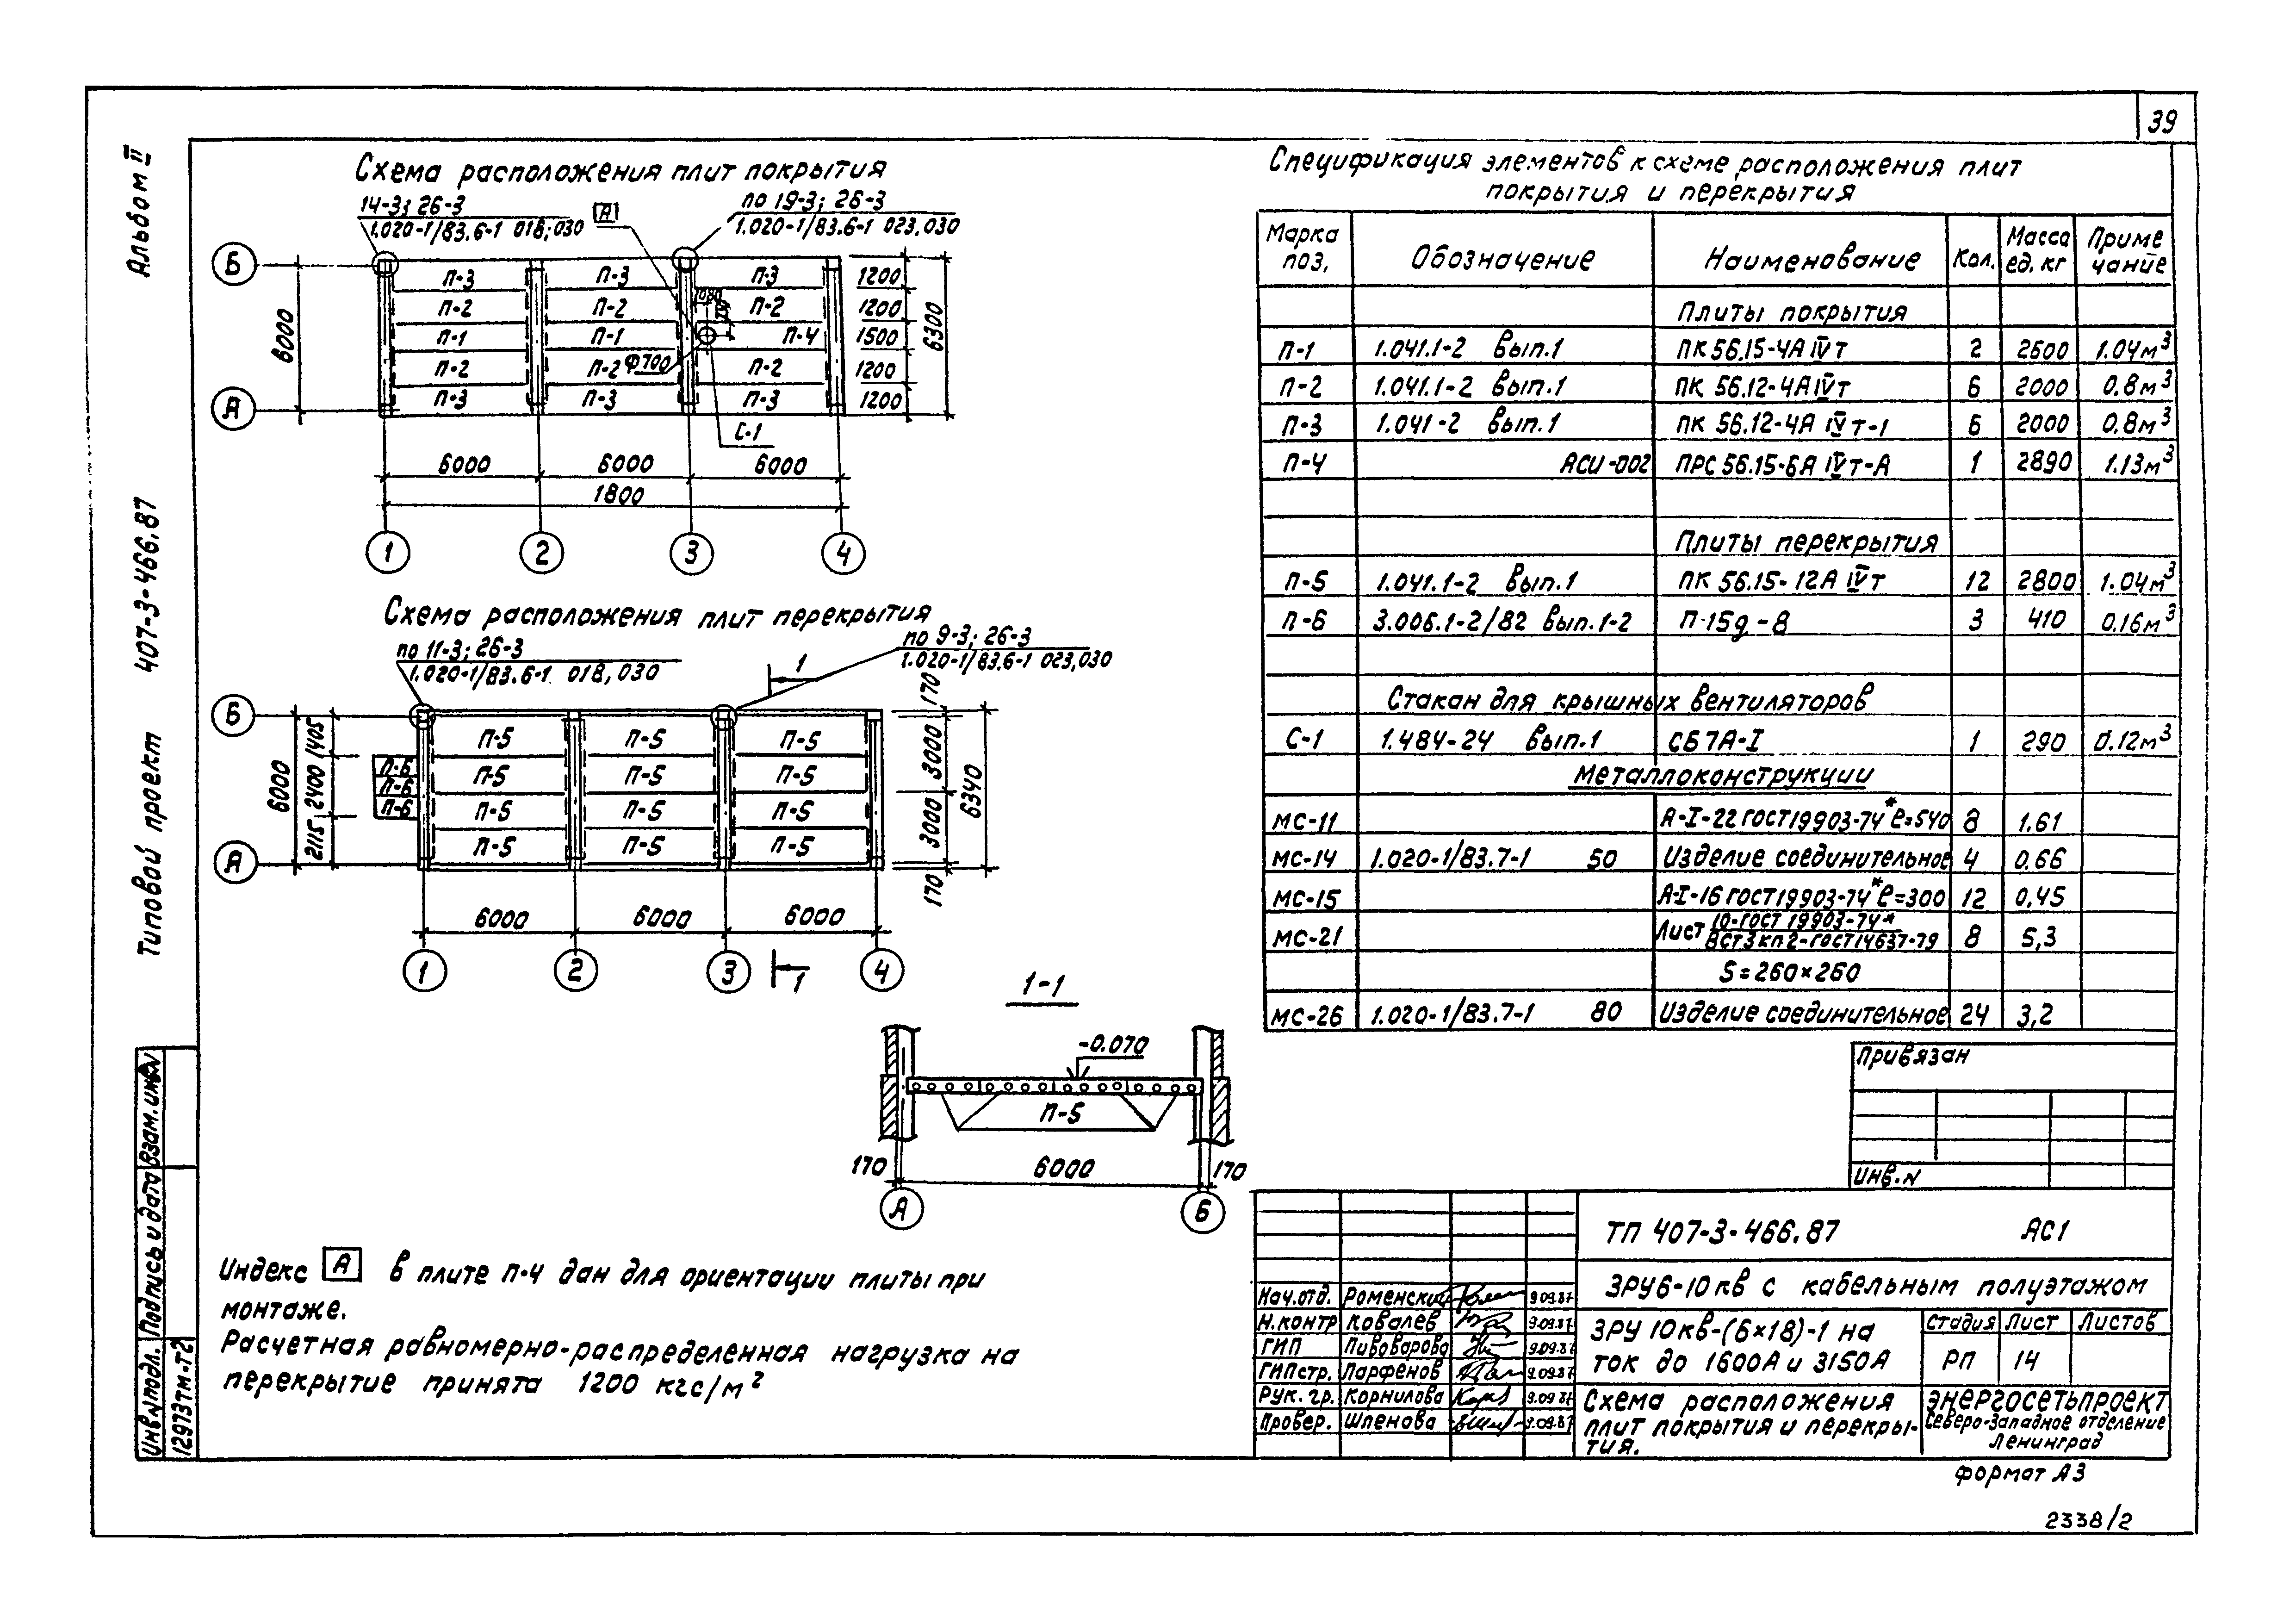 39
Альбом II
Типовой проект 407-3-466.87
Схема расположения плит покрытия
14-3; 26-3
1.020-1/83.6-1 018;030
А
по 19-3; 26-3
1.020-1/83.6-1 023,030
Б
А
6000
П-3 П-3 П-3
П-2 П-2 П-2
П-1 П-1 П-4
П-2 П-2 П-2
П-3 П-3 П-3
Ф700
С-1
1200
1200
1500
1200
1200
6300
6000 6000 6000
1800
1 2 3 4
Схема расположения плит перекрытия
по 11-3; 26-3
1.020-1/83.6-1 018, 030
по 9-3; 26-3
1.020-1/83.6-1 023,030
1
Б
А
6000
1405
2400
2115
П-6
П-6
П-6
П-5 П-5 П-5
П-5 П-5 П-5
П-5 П-5 П-5
П-5 П-5 П-5
170
3000
3000
170
6340
6000 6000 6000
1 2 3 4
1
1-1
-0.070
П-5
170 6000 170
А Б
Индекс А в плите П-4 дан для ориентации плиты при
монтаже.
Расчетная равномерно-распределенная нагрузка на
перекрытие принята 1200 кгс/м²
Спецификация элементов к схеме расположения плит
покрытия и перекрытия
Марка поз. Обозначение Наименование Кол. Масса ед. кг Приме чание
Плиты покрытия
П-1 1.041.1-2 Вып.1 ПК 56.15-4А IV т 2 2600 1.04м³
П-2 1.041.1-2 Вып.1 ПК 56.12-4А IV т 6 2000 0.8м³
П-3 1.041-2 Вып.1 ПК 56.12-4А IV т-1 6 2000 0.8м³
П-4 АСИ-002 ПРС 56.15-6А IV т-А 1 2890 1.13м³
Плиты перекрытия
П-5 1.041.1-2 Вып.1 ПК 56.15-12А IV т 12 2800 1.04м³
П-6 3.006.1-2/82 Вып.1-2 П-15д-8 3 410 0.16м³
Стакан для крышных вентиляторов
С-1 1.484-24 Вып.1 СБ7А-I 1 290 0.12м³
Металлоконструкции
МС-11 А-I-22 ГОСТ 19903-74* ℓ=540 8 1.61
МС-14 1.020-1/83.7-1 50 Изделие соединительное 4 0.66
МС-15 А-I-16 ГОСТ 19903-74* ℓ=300 12 0,45
МС-21 Лист 10-ГОСТ 19903-74* / ВСт3кп2-ГОСТ14637-79 8 5,3
S=260×260
МС-26 1.020-1/83.7-1 80 Изделие соединительное 24 3,2
Привязан
Инв.N
ТП 407-3-466.87 АС1
ЗРУ6-10кв с кабельным полуэтажом
ЗРУ 10кв-(6×18)-1 на
ток до 1600А и 3150А
Стадия Лист Листов
РП 14
Схема расположения
плит покрытия и перекры-
тия.
ЭНЕРГОСЕТЬПРОЕКТ
Северо-Западное отделение
Ленинград
Нач.отд. Роменский 9.09.87
Н.контр Ковалев 9.09.87
ГИП Пивоварова 9.09.87
ГИПстр. Парфенов 9.09.87
Рук. гр. Корнилова 9.09.87
Провер. Шленова 9.09.87
Взам.инв.N
Подпись и дата
Инв.N подл.
12973тм-т2
Формат А3
2338/2